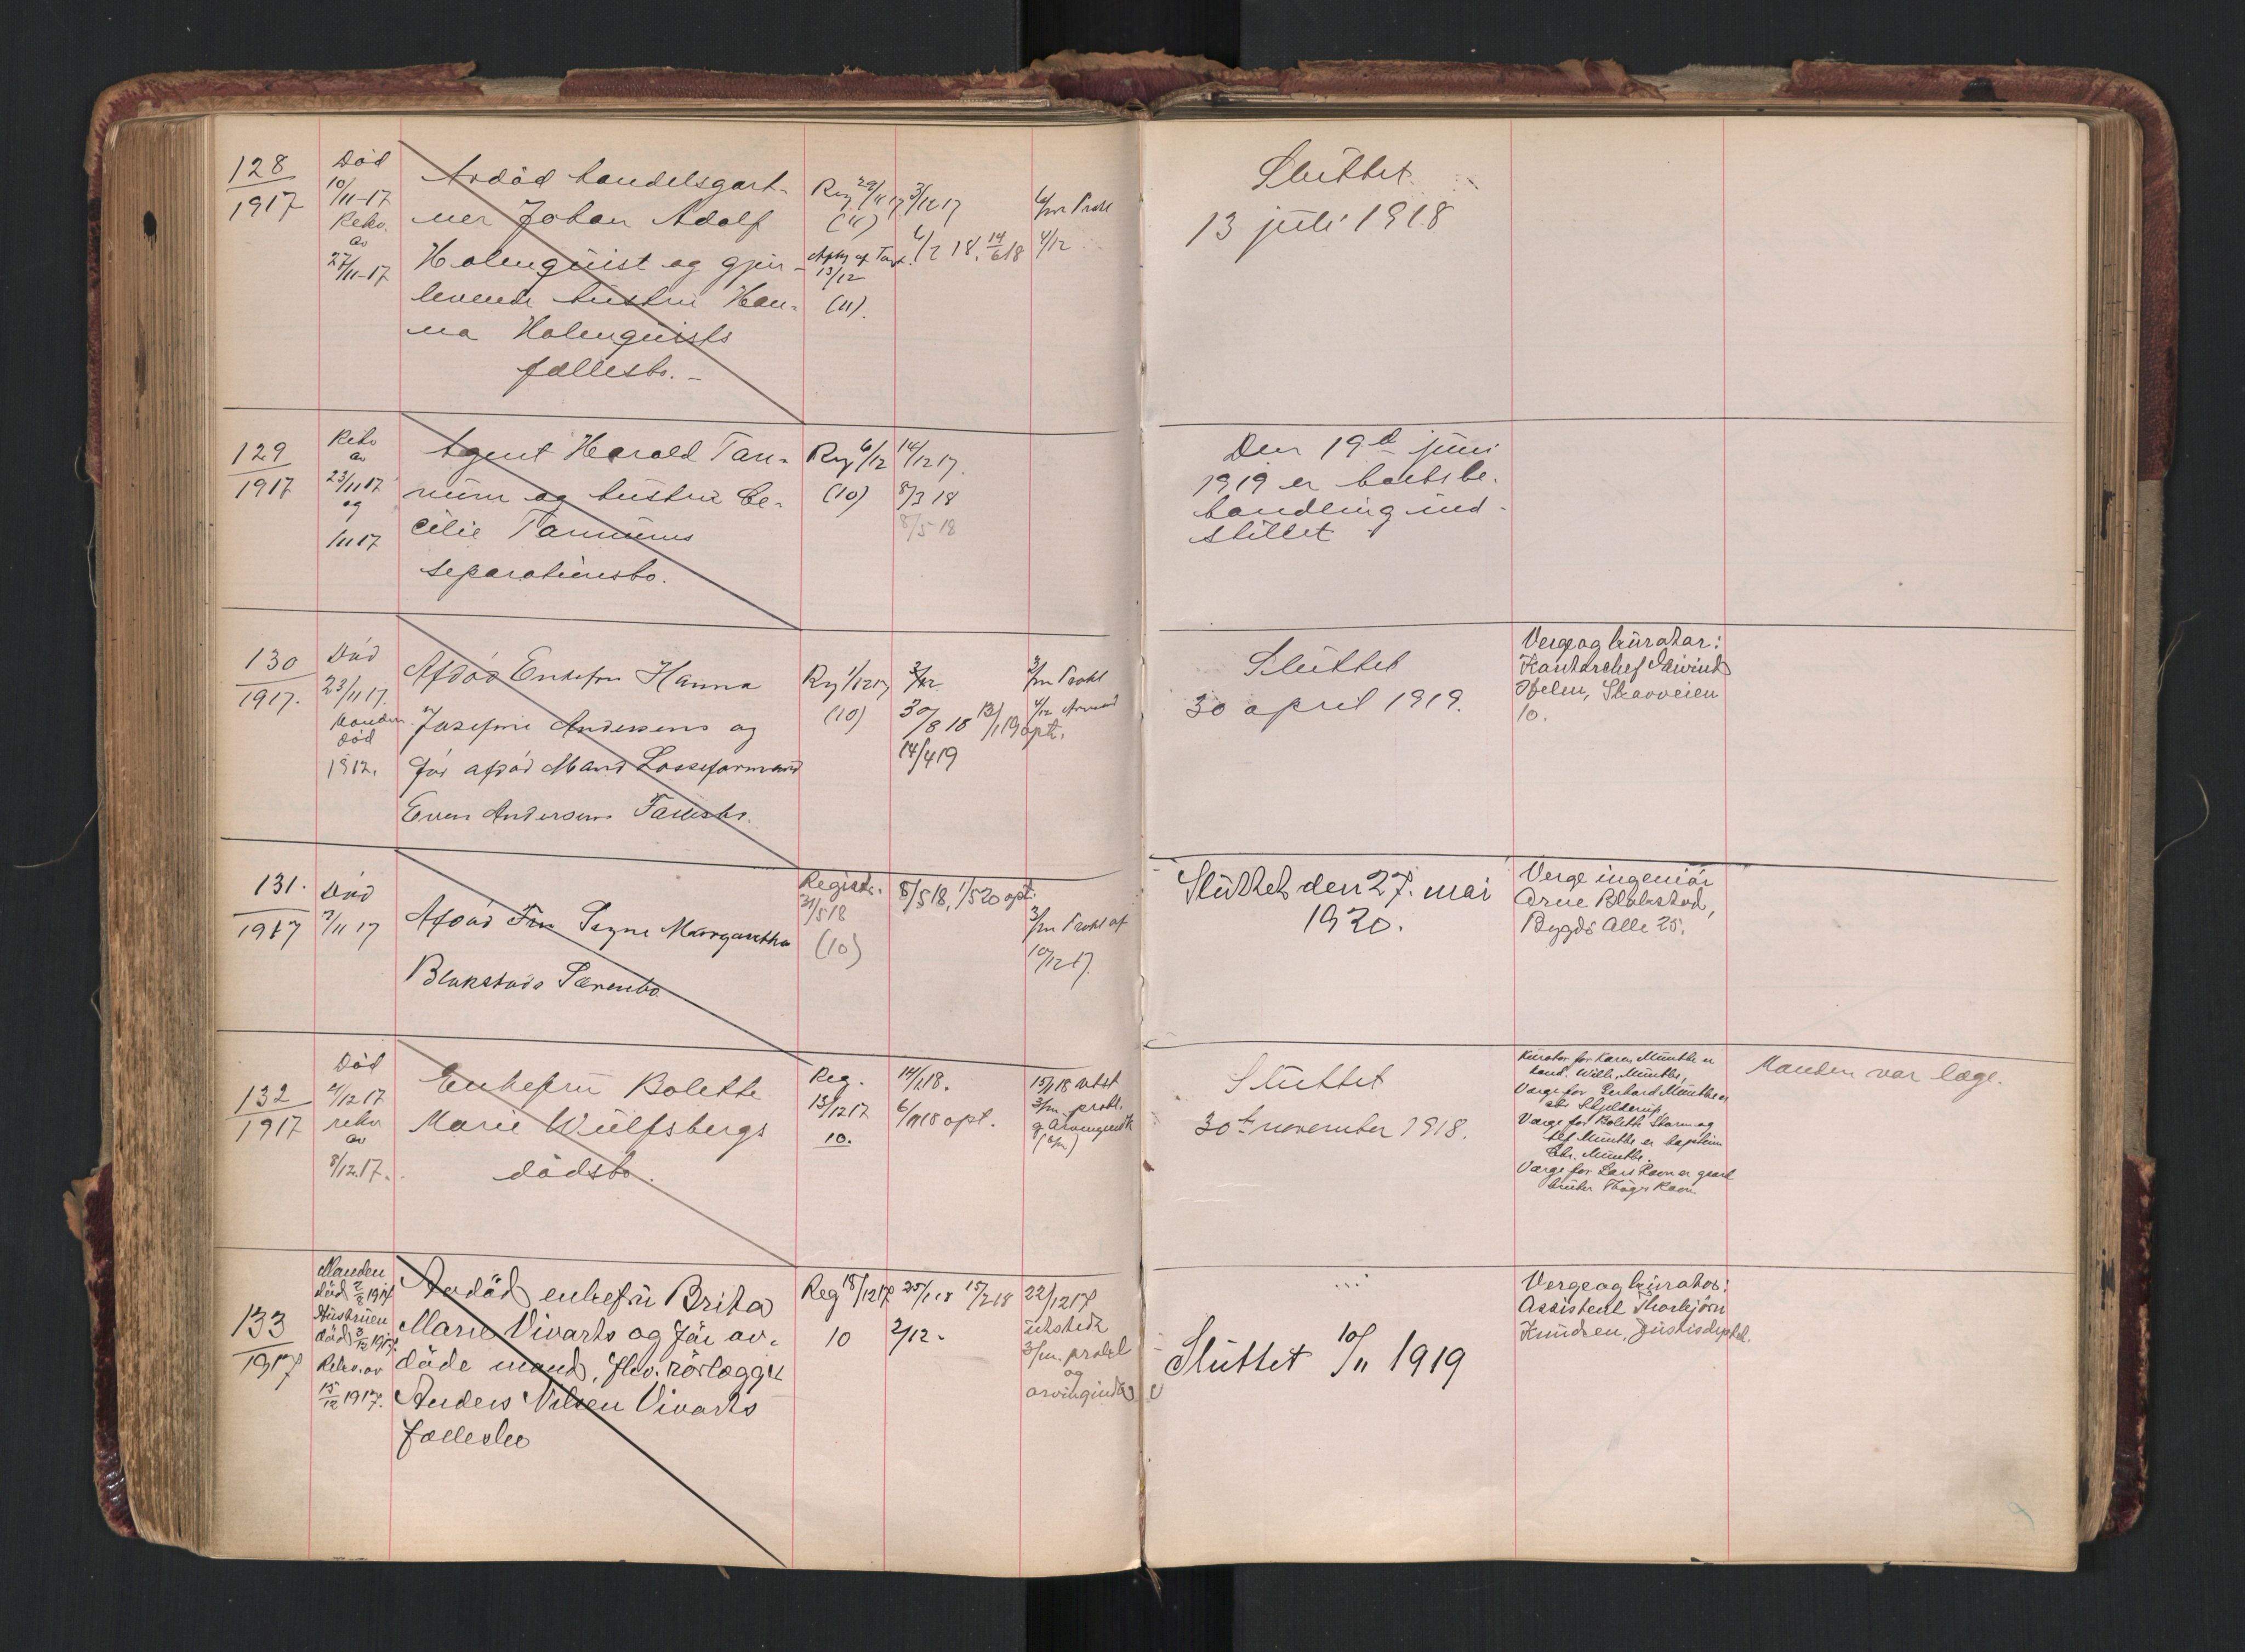 128
1917
Död
10/11-17
Rekv.
av
27/11-17
Avdöd handelsgart-
ner Johan Adolf
Holmquist og gjen-
levende hustru Han-
na Holmquists
fællesbo. -
Reg. 29/11 17
(11)
13/12
(11).
3/12 17
6/2 18. 14/6 18
6/m Prokl
4/12
Sluttet
13 juli 1918
129
1917
Rekv
av
23/11 17
og
1/11 17
Agent Harald Tan-
num og hustru Ce-
cilie Tannums
separationsbo.
Reg 6/12
(10)
14/12 17.
8/3 18
8/5 18
Den 19d juni
1919 er bobts be-
handling ind-
stillet
130
1917.
Död
23/11 17.
Manden
död
1912.
Afdöd Enkefru Hanna
Josefine Andersens og
før afdöd Mand Losseformand
Even Andersens Fællesbo.
Reg 1/12 17
(10)
3/12
30/8 18 13/1 19 opt.
14/4 19
3/m Prokl
4/12
Sluttet
30 april 1919.
Verge og kurator:
Kontorchef Eivind
Ihlen, Skovveien
10.
131.
1917
Död
3/11 17
Afdöd Fru Signe Margaretha
Blakstads Særenbo
Registr.
31/5 18
(10)
8/5 18, 1/5 20 opt.
3/m Prokl af
10/12 17.
Sluttet den 27. mai
1920.
Verge ingeniör
Arne Blakstad,
Bygdö Alle 25.
132
1917
Död
4/12 17
rekv
av
8/12.17.
Enkefru Bolette
Marie Wülfsbergs
dödsbo.
Reg.
13/12 17
10.
14/1 18.
6/11 18 opt.
15/1 18 utst
3/m. prokl.
g. Arvingeindk
(6/m)
Sluttet
30te november 1918.
Kurator for Karen Münthe er
kand. Wilh. Münthe,
Værge for Gerhard Münthe er
Schjelderup,
Værge for Bolette Storm og
Münthe er kaptein
Chr. Münthe.
Værge for Lars Ravn er gaard
bruker Ravn
Manden var læge.
133
1917
Manden
död 2/8 1917
Hustruen
död 3/12 1917.
Rekv. av
15/12 1917.
Avdöd enkefru Brita
Marie Vivarts og för av-
döde mand, fhv. rörlægger
Anders Nilsen Vivarts
fællesbo
Reg 18/12 17
10
25/1 18 15/2 18
2/12-
22/12 17
utstedt
3/m. prokl
og
arvingindk
Sluttet 10/11 1919
Verge og kurator:
Assistent Thorbjörn
Knudsen, Justisdeptet.